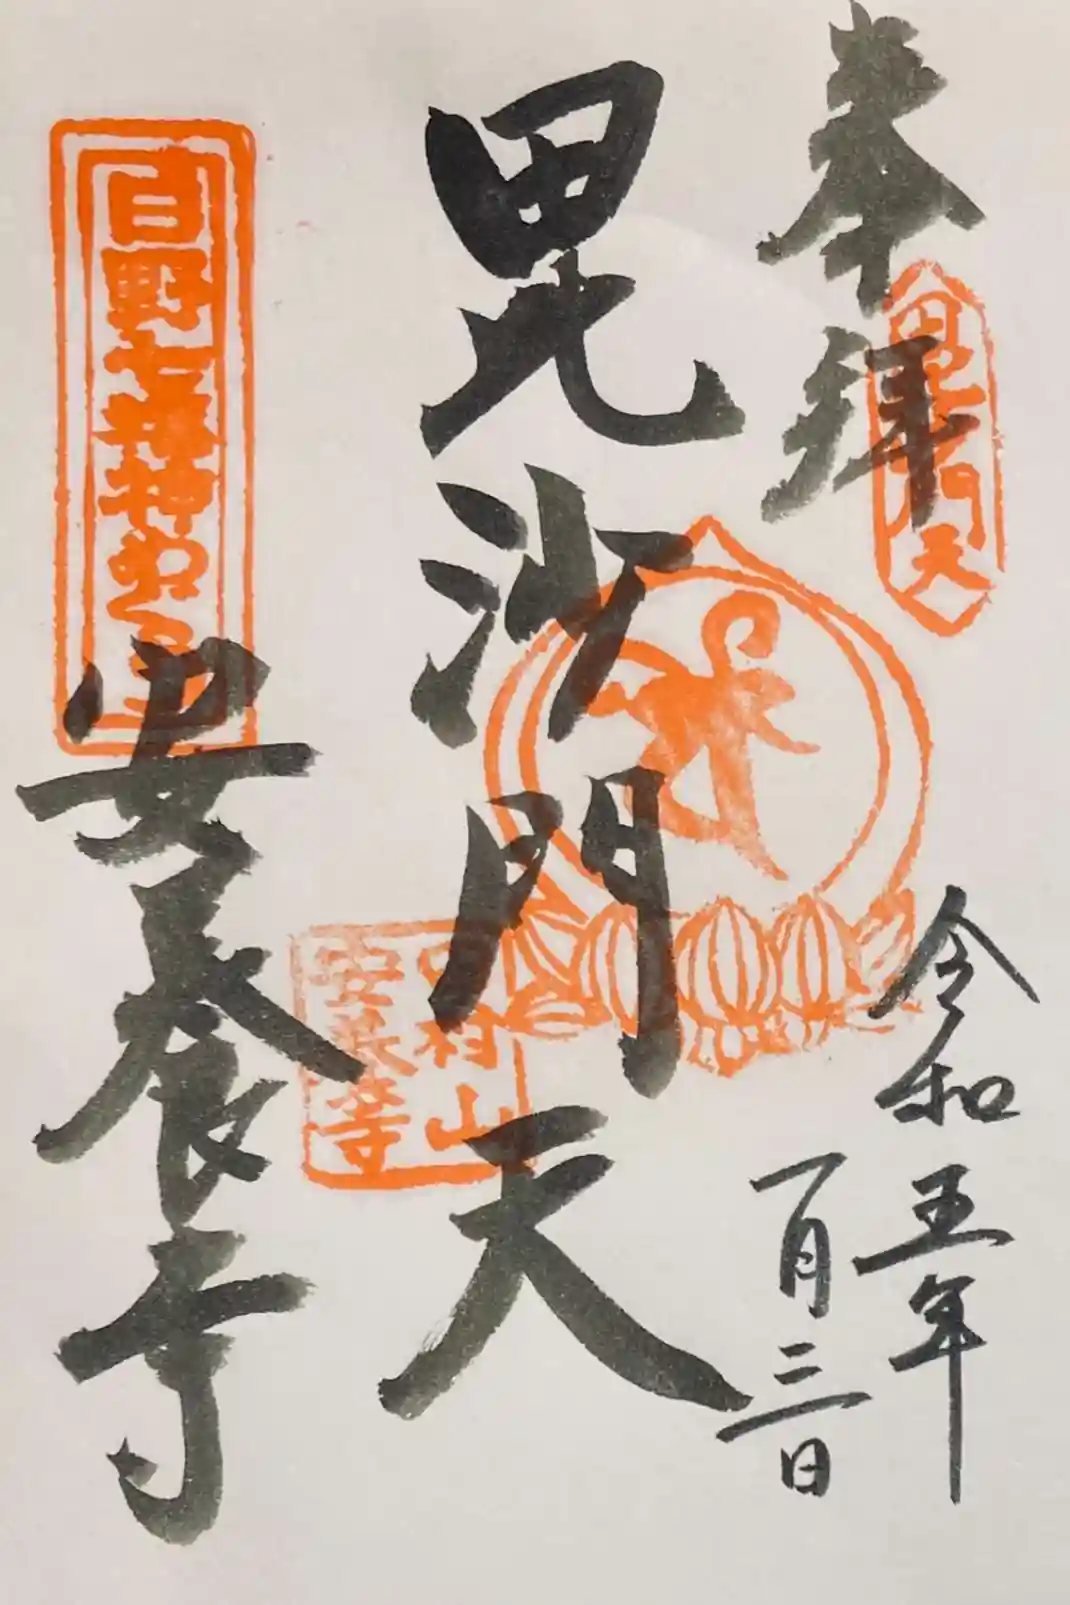 奉拝
毘沙門天
令和五年
一月三日
毘沙門天
日野七福神めぐり
田村山
安養寺
安養寺